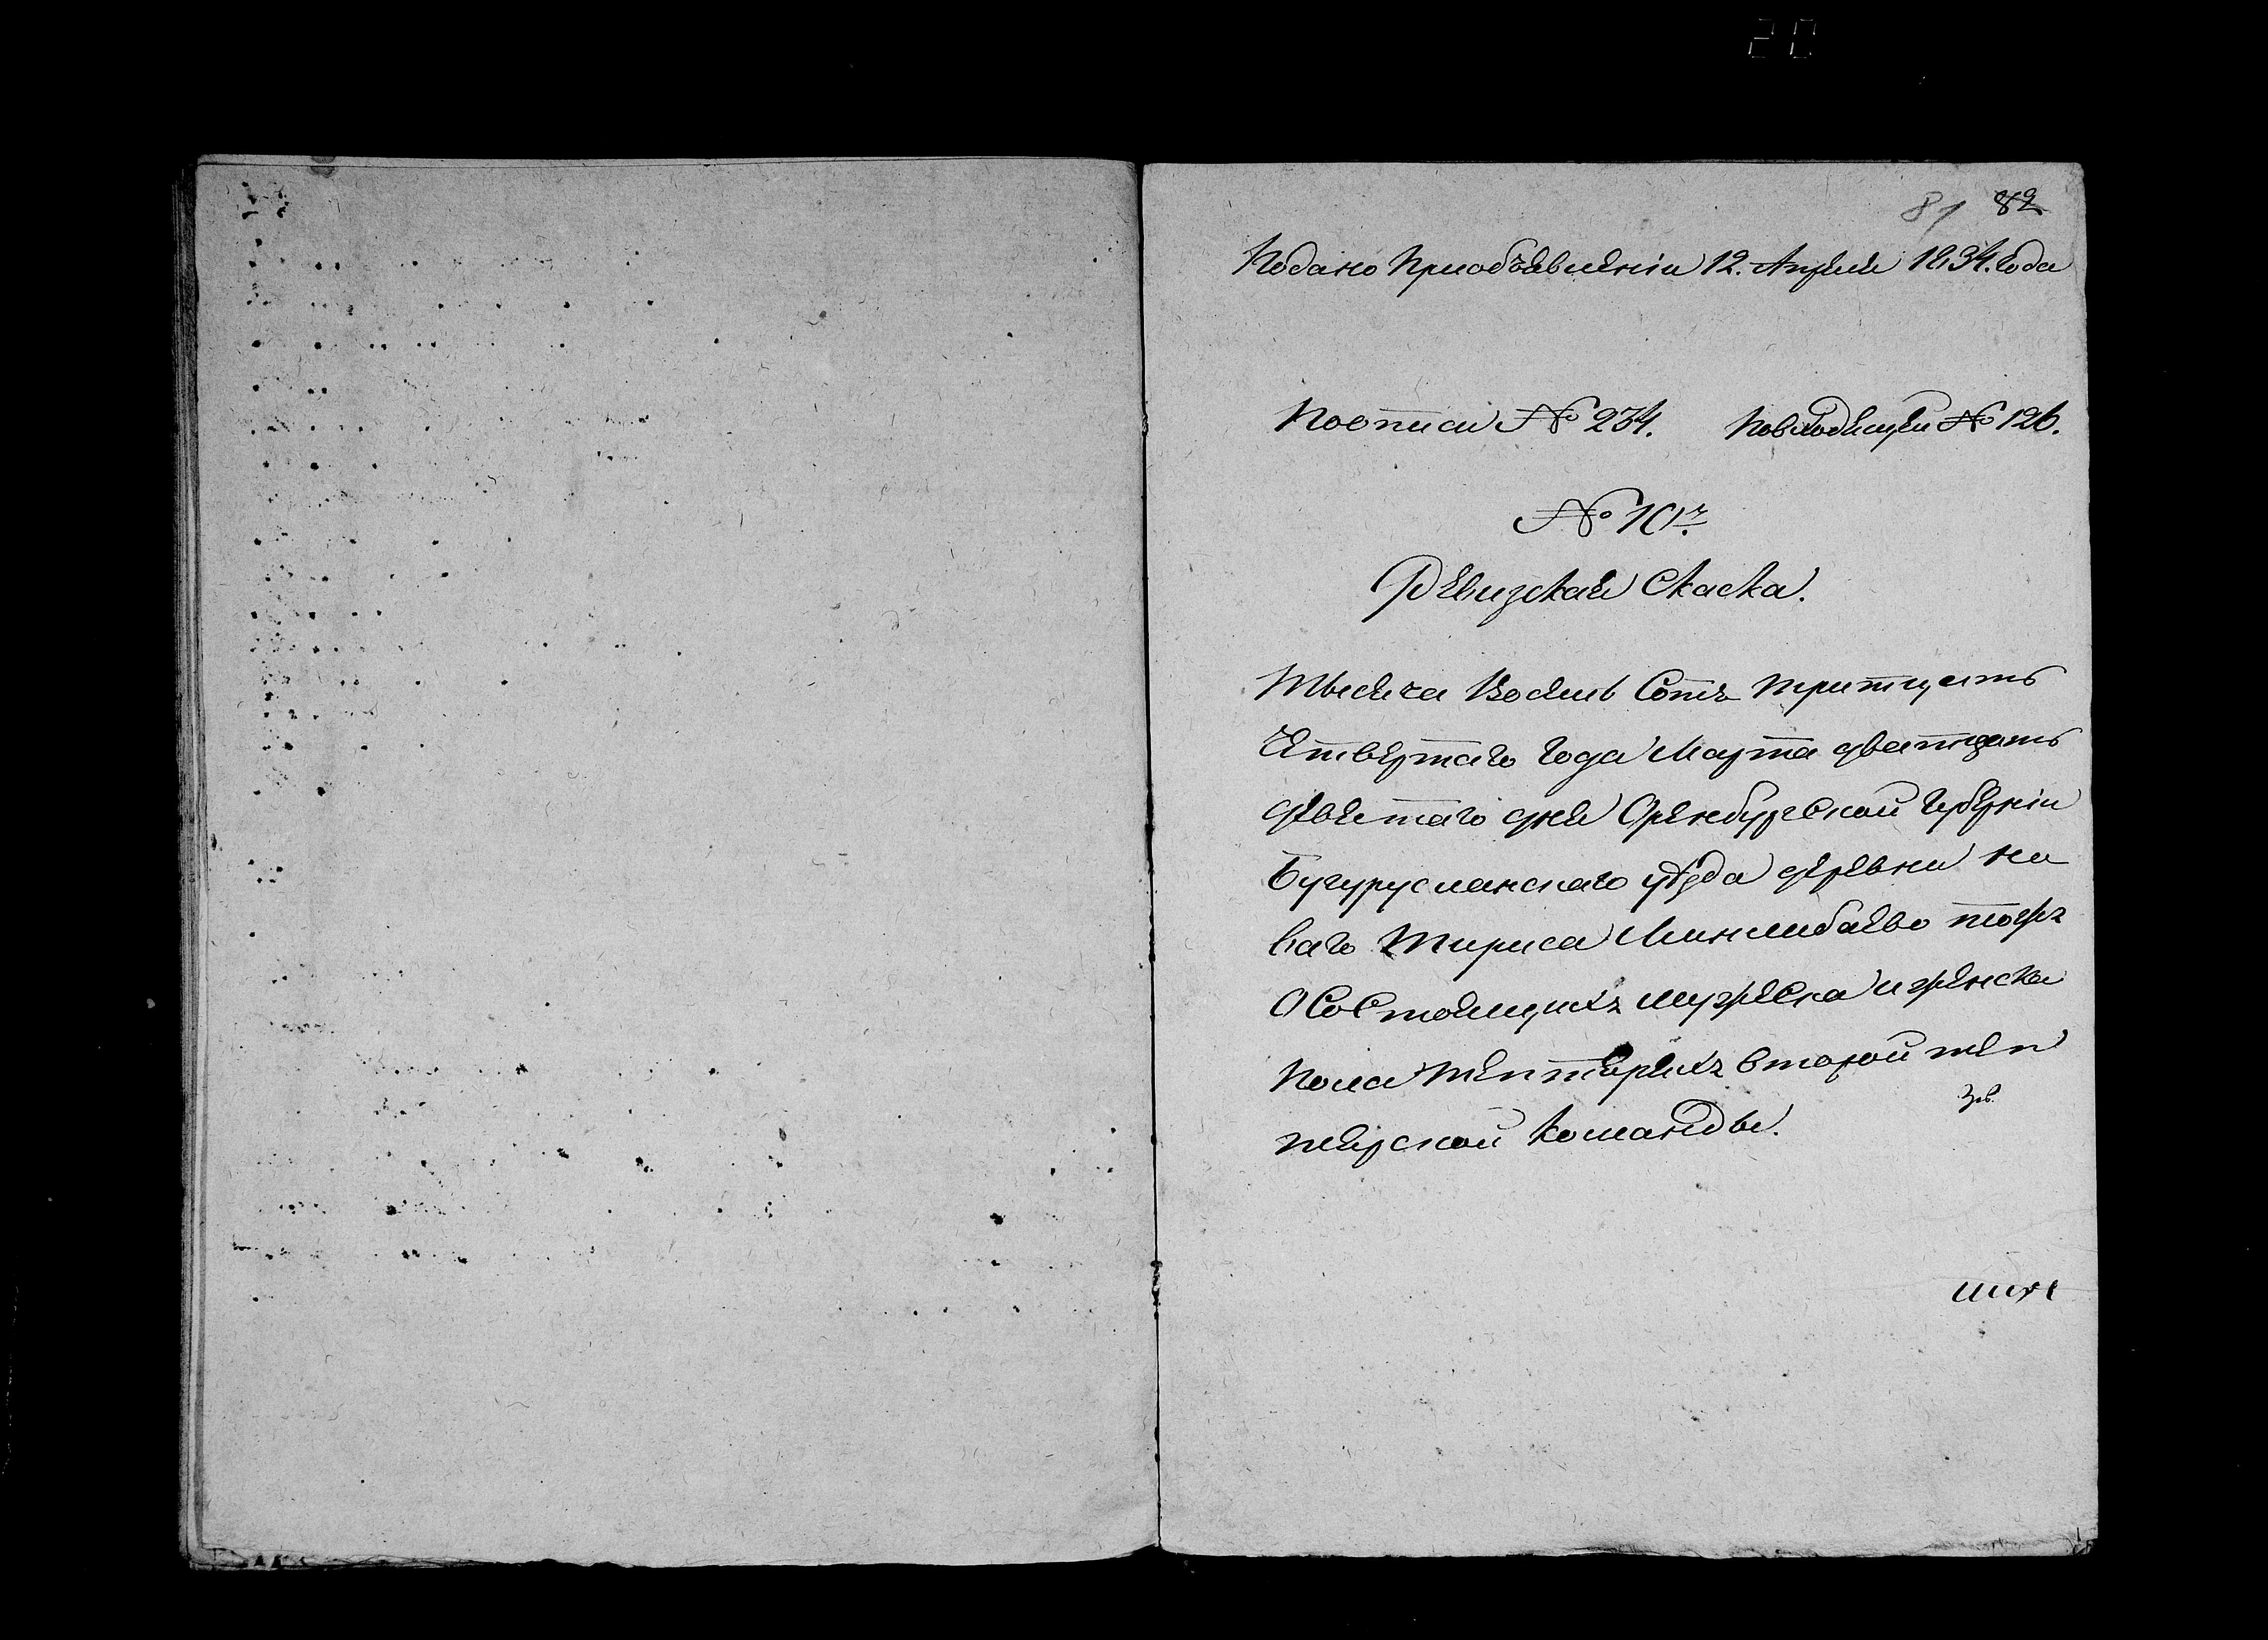 20
81 82
Подано Приобъявленiи 12. Апреля 1834. Года
Поописи № 234. Повходящей № 126.
№ 10й
Ревизская Скаска.
Тысяча Восемь Сотъ тритцать
Четвертаго года Марта дватцать
девятаго дня Оренбургской губернiи
Бугурусланскаго уѣзда деревни но
ваго Тириса Минлибаево тожъ
О Состоящихъ мужеска и женска
пола тептерихъ второй теп
терской Команды.